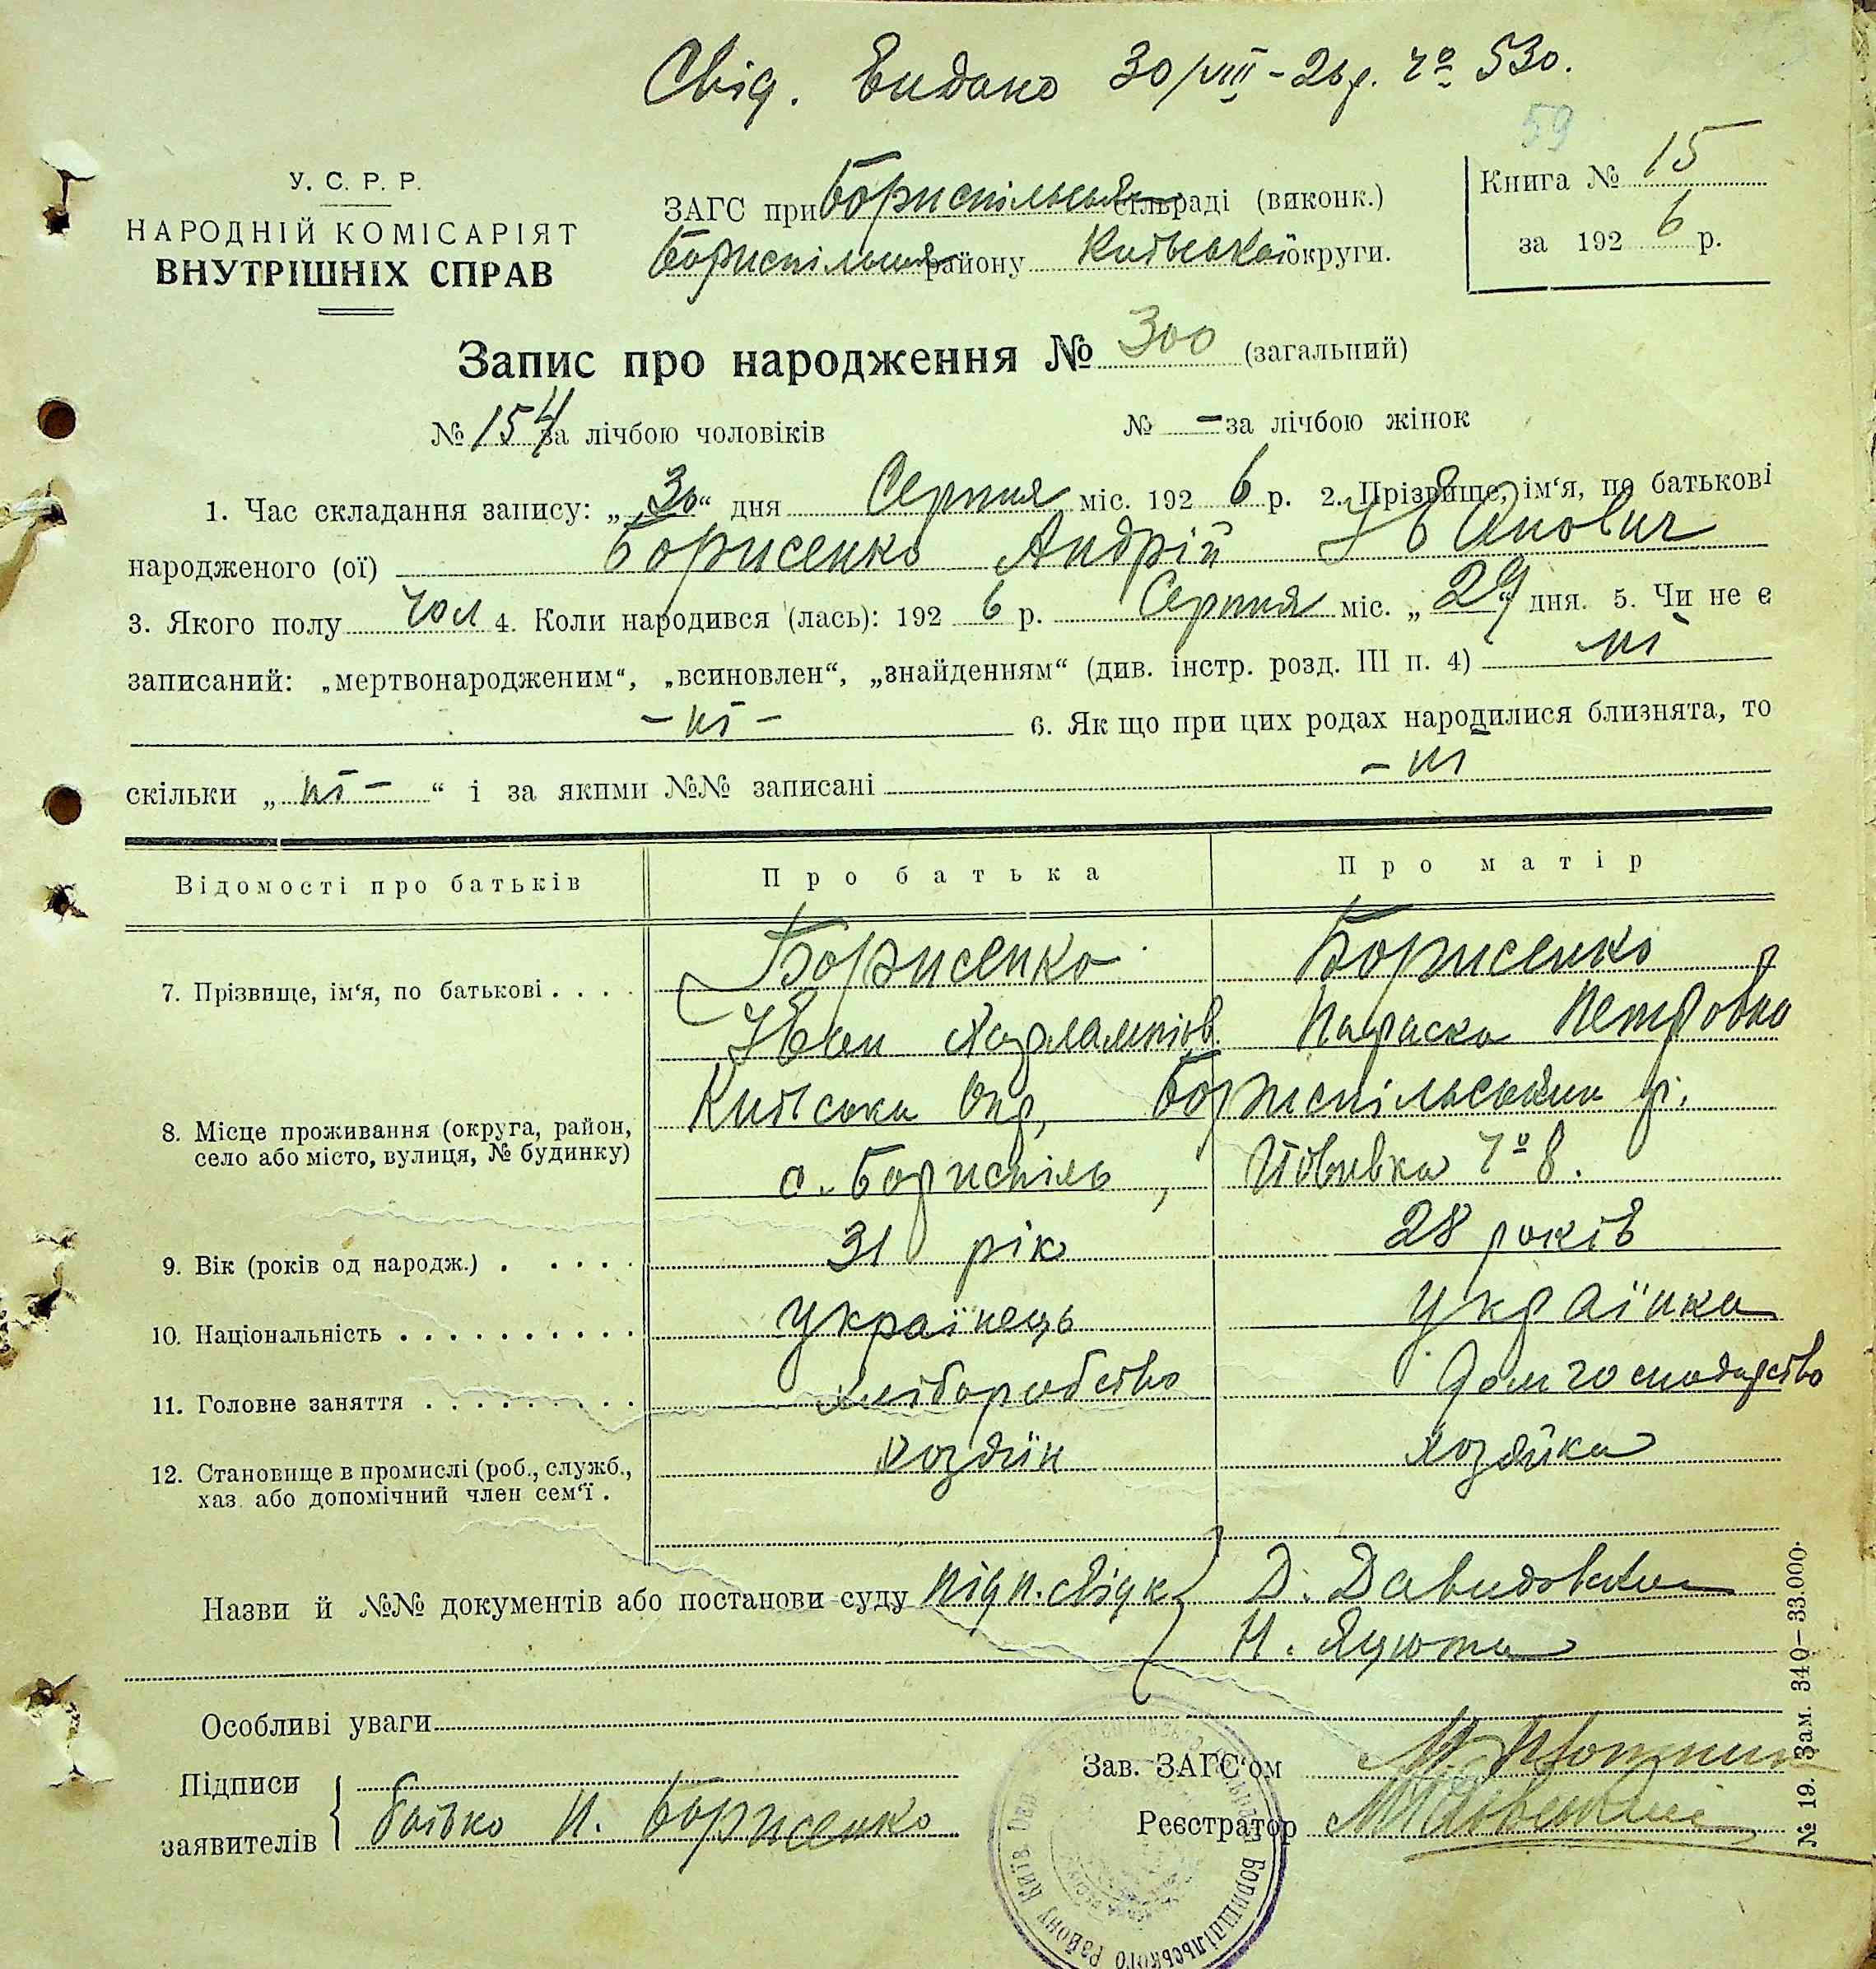 Свід. Видано 30/VIII - 26 р. № 530.
59
У. С. Р. Р.
НАРОДНІЙ КОМІСАРІЯТ
ВНУТРІШНІХ СПРАВ
ЗАГС при Бориспільськ сільраді (виконк.)
Бориспільськ району Київськоï округи.
Книга № 15
за 192 6 р.
Запис про народження № 300 (загальний)
№ 154 за лічбою чоловіків № — за лічбою жінок
1. Час складання запису: „ 30 “ дня Серпня міс. 192 6 р. 2. Прізвище, ім‘я, по батькові
народженого (ої) Борисенко Андрій Іванович
3. Якого полу чол 4. Коли народився (лась): 192 6 р. Серпня міс. „ 29 “ дня. 5. Чи не є
записаний: „мертвонародженим“, „всиновлен“, „знайденням“ (див. інстр. розд. III п. 4) ні
– ні – 6. Як що при цих родах народилися близнята, то
скільки „ ні – “ і за якими №№ записані – ні
Відомості про батьків Про батька Про матір
7. Прізвище, ім‘я, по батькові . . . . Борисенко Борисенко
Іван Харлампіов. Параска Петровна
8. Місце проживання (округа, район, село або місто, вулиця, № будинку) Київська окр, Бориспільський р.
с. Бориспіль, № 8.
9. Вік (років од народж.) . . . . . 31 рік 28 років
10. Національність . . . . . . . . . . українець українка
11. Головне заняття . . . . . . . . . хліборобство дом господарство
12. Становище в промислі (роб., служб., хаз. або допомічний член сем‘ї . хозяїн хозяйка
Назви й №№ документів або постанови суду підп. свідк. Д. Давидовський
Н. Яцюта
Особливі уваги
Підписи
заявителів батько И. Борисенко
Зав. ЗАГС‘ом
Реєстратор
№ 19. Зам. 340–33.000.
Бориспільського Району Київ Окр.